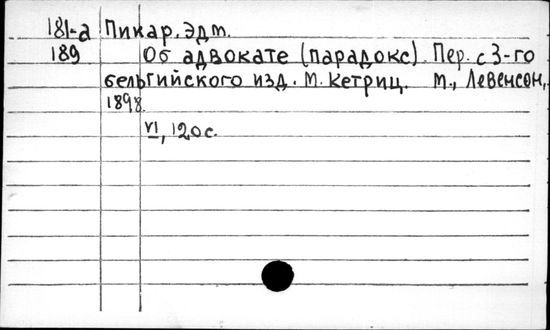 181-а Пикар, Эдм.
189 Об адвокате (парадокс). Пер. с 3-го
бельгийского изд. М. Кетриц. М., Левенсон,
1898.
VI, 120 с.